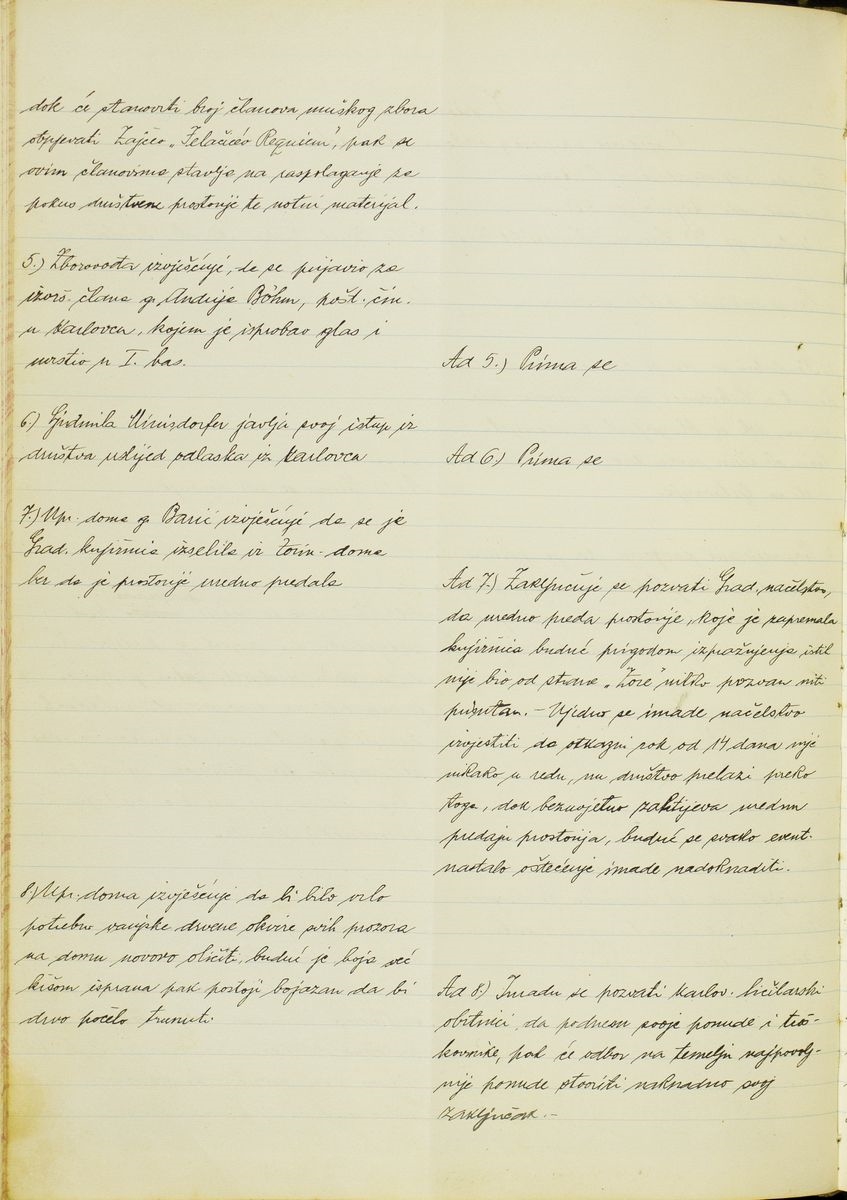 dok će stanoviti broj članova muškog zbora
otpjevati Zajčev „Jelačićev Requiem", pak se
ovim članovima stavlja na raspolaganje za
pokus društvene prostorije te notni materijal.
5.) Zborovođa izvješćuje, da se prijavio za
izvrš. člana g. Andrija Böhm, pošt. čin.
u Karlovcu, kojem je isprobao glas i
uvrstio u I. bas.
Ad 5.) Prima se
6.) Ljudmila javlja svoj istup iz
društva uslijed odlaska iz Karlovca
Ad 6.) Prima se
7.) Upr. doma g. Barić izvješćuje da se je
Grad. knjižnica izselila iz Zorin-doma
bez da je prostorije uredno predala
Ad 7.) Zaključuje se pozvati Grad. načelstvo,
da uredno preda prostorije, koje je zapremala
knjižnica budući prigodom izpražnjenja isti
nije bio od strane „Zore" nitko pozvan niti
prisutan. – Ujedno se imade načelstvo
izvjestiti da otkazni rok od 14 dana nije
nikako u redu, nu društvo prelazi preko
toga, dok bezuvjetno zahtijeva urednu
predaju prostorija, budući se svako event.
nastalo oštećenje imade nadoknaditi.
8.) Upr. doma izvješćuje da bi bilo vrlo
potrebno vanjske drvene okvire svih prozora
na domu novovo oličiti, budući je boja već
kišom isprana pak postoji bojazan da bi
drvo počelo trunuti.
Ad 8.) Imadu se pozvati karlov. ličilarski
obrtnici da podnesu svoje ponude i troš-
kovnike, pak će odbor na temelju najpovolj-
nije ponude stvoriti naknadno svoj
zaključak. –